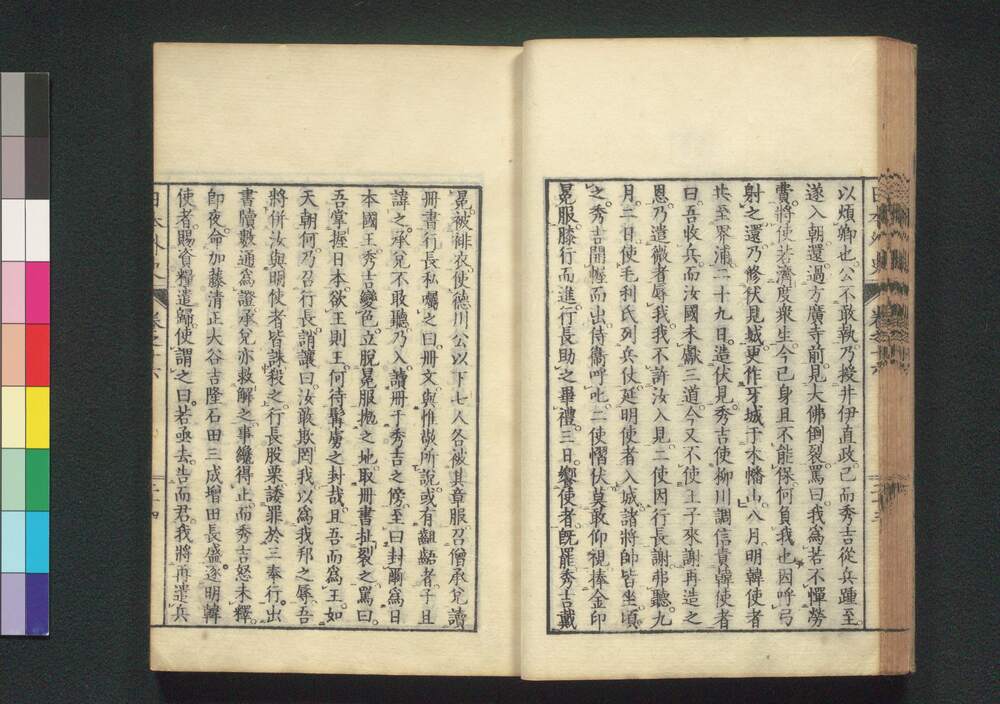 以煩卿也公不敢執乃授井伊直政已而秀吉從兵踵至
遂入朝還過方廣寺前見大佛倒裂罵曰我爲若不憚勞
費將使若濟度衆生今己身且不能保何負我也因呼弓
射之還乃修伏見城更作牙城于木幡山八月明韓使者
共至界浦二十九日造伏見秀吉使柳川調信責韓使者
曰吾收兵而汝國未獻三道今又不使王子來謝再造之
恩乃遣微者辱我我不許汝入見二使因行長謝弗聽九
月二日使毛利氏列兵仗延明使者入城諸將帥皆坐頃
之秀吉開幄而出侍衞呼叱二使慴伏莫敢仰視捧金印
冕服膝行而進行長助之畢禮三日饗使者旣罷秀吉戴
冕被緋衣使德川公以下七人各被其章服召僧承兌讀
册書行長私囑之曰册文與惟敬所說或有齟齬者子且
諱之承兌不敢聽乃入讀册于秀吉之傍至曰封爾爲日
本國王秀吉變色立脫冕服抛之地取册書扯裂之罵曰
吾掌握日本欲王則王何待髯虜之封哉且吾而爲王如
天朝何乃召行長誚讓曰汝敢欺罔我以爲我邦之辱吾
將併汝與明使者皆誅殺之行長股栗諉罪於三奉行出
書牘數通爲證承兌亦救解之事纔得止而秀吉怒未釋
卽夜命加藤清正大谷吉隆石田三成增田長盛逐明韓
使者賜資糧遣歸使謂之曰若亟去告而君我將再遣兵
日本外史
卷之十六
二十四